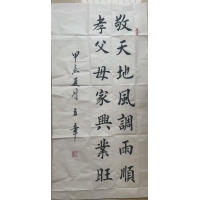 敬天地風調雨順
孝父母家興業旺
甲辰夏月立軍